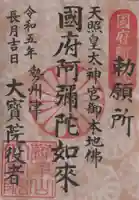 勅願所
天照皇太神宮御本地佛
國府阿彌陀如來
勢州津
大寶院役者
令和五年
長月吉日